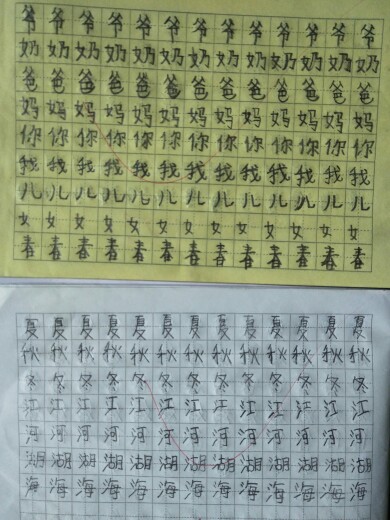 爷爷爷爷爷爷爷爷爷爷爷爷爷
奶奶奶奶奶奶奶奶奶奶奶奶奶
爸爸爸爸爸爸爸爸爸爸爸爸爸
妈妈妈妈妈妈妈妈妈妈妈妈妈
你你你你你你你你你你你你你
我我我我我我我我我我我我我
儿儿儿儿儿儿儿儿儿儿儿儿儿
女女女女女女女女女女女女女
春春春春春春春春春春春春春
夏夏夏夏夏夏夏夏夏夏夏夏夏
秋秋秋秋秋秋秋秋秋秋秋秋秋
冬冬冬冬冬冬冬冬冬冬冬冬冬
江江江江江江江江江江江江江
河河河河河河河河河河河河河
湖湖湖湖湖湖湖湖湖湖湖湖湖
海海海海海海海海海海海海海